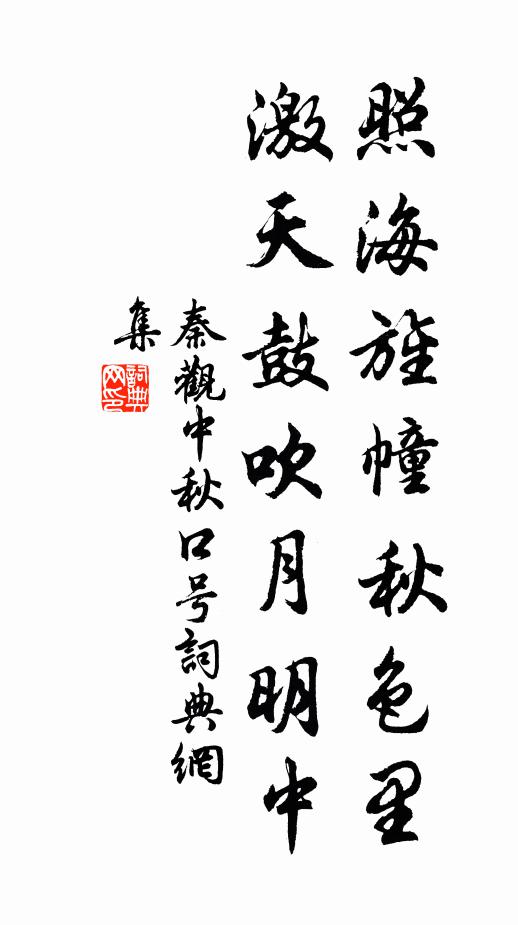 照海旌幢秋色里
激天鼓吹月明中
秦觀中秋口号詞典網
集
詞典网印